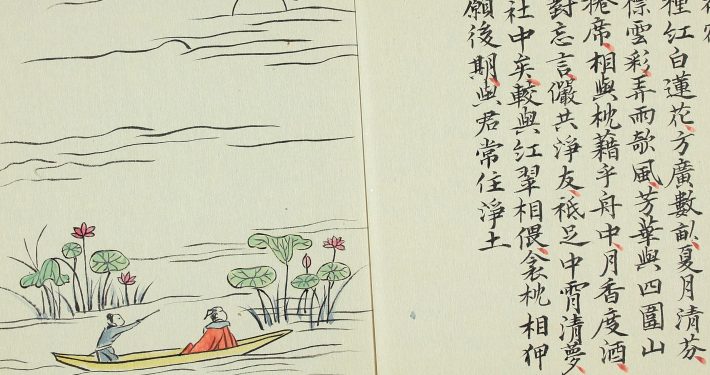 種紅白蓮花方廣數畝夏月清芬
標雲彩弄雨欹風芳華與四圍山
捲席相與枕藉乎舟中月香度酒
對忘言儼共淨友祇足中霄清夢
社中矣較與紅翠相偎衾枕相狎
願後期與君常住淨土